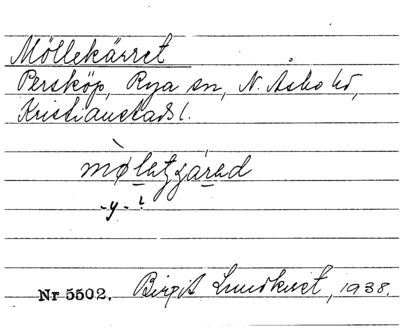 Möllekärret
Persköp, Rya sn, N. Åsbo hd,
Kristianstads l.
-y-
Nr 5502. Birgit Lundkvist, 1938.